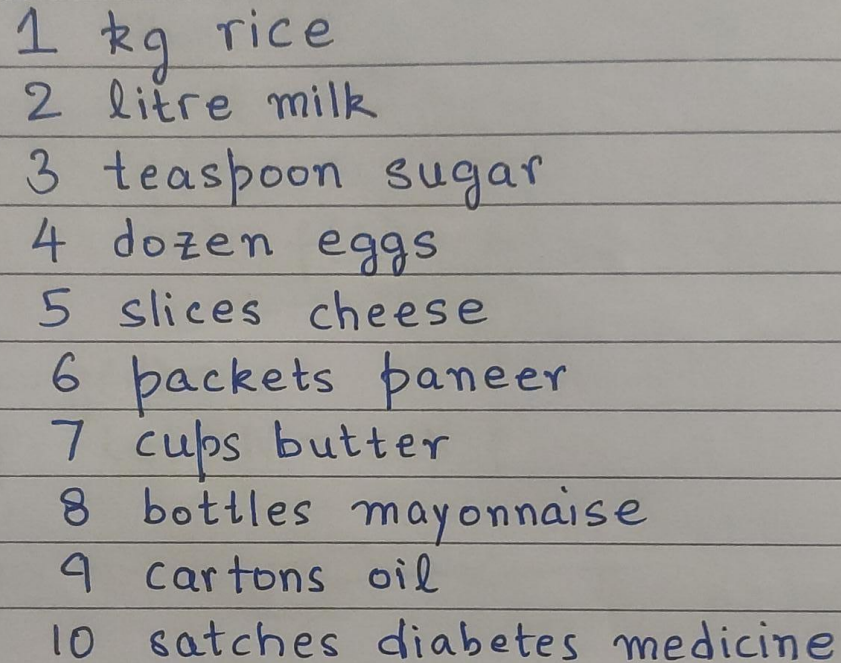 1 kg rice
2 litre milk
3 teaspoon sugar
4 dozen eggs
5 slices cheese
6 packets paneer
7 cups butter
8 bottles mayonnaise
9 cartons oil
10 satches diabetes medicine